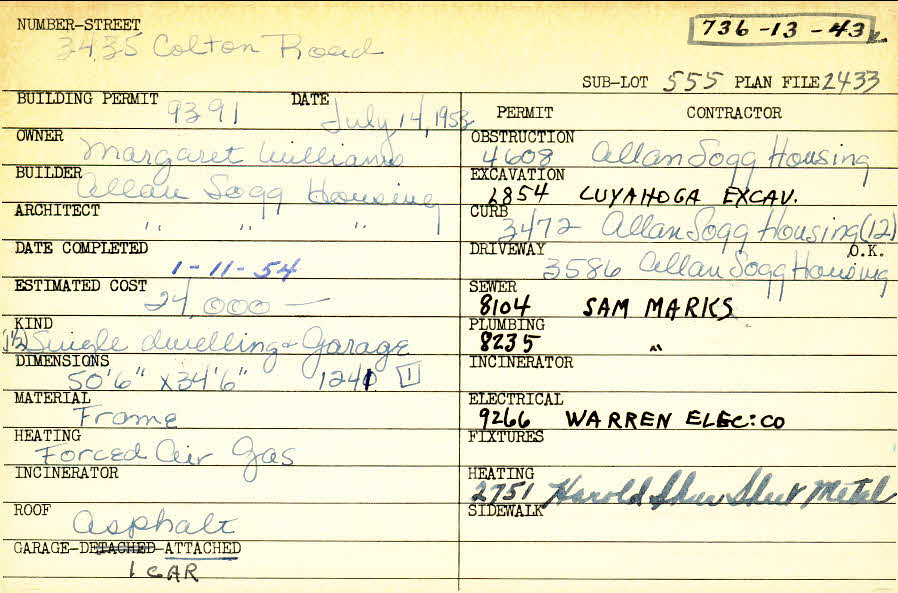 NUMBER-STREET
3435 Colton Road
736-13-43
SUB-LOT 555 PLAN FILE 2433
BUILDING PERMIT 9391 DATE July 14, 1953
OWNER Margaret Williams
BUILDER Allan Sogg Housing
ARCHITECT " " "
DATE COMPLETED 1-11-54
ESTIMATED COST 24,000 —
KIND (1½) Single dwelling & Garage
DIMENSIONS 50'6" x 34'6" 1240 1
MATERIAL Frame
HEATING Forced Air Gas
INCINERATOR
ROOF Asphalt
GARAGE-DETACHED-ATTACHED
1 CAR
PERMIT CONTRACTOR
OBSTRUCTION
4608 Allan Sogg Housing
EXCAVATION
2854 CUYAHOGA EXCAV.
CURB
3472 Allan Sogg Housing (12)
DRIVEWAY O.K.
3586 Allan Sogg Housing
SEWER
8104 SAM MARKS
PLUMBING
8235 "
INCINERATOR
ELECTRICAL
9266 WARREN ELEC: CO
FIXTURES
HEATING
2751 Harold Shaw Sheet Metal
SIDEWALK